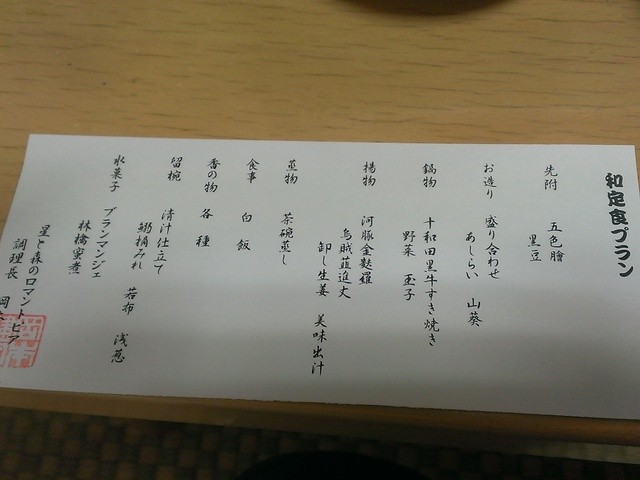 和定食プラン
先附 五色膾
黒豆
お造り 盛り合わせ
あしらい 山葵
鍋物 十和田黒牛すき焼き
野菜 玉子
揚物 河豚金麩羅
烏賊韮進丈
卸し生姜 美味出汁
蒸物 茶碗蒸し
食事 白飯
香の物 各種
留椀 清汁仕立て
鰯摘みれ 若布 浅葱
水菓子 ブランマンジェ
林檎蜜煮
星と森のロマントピア
調理長 岡